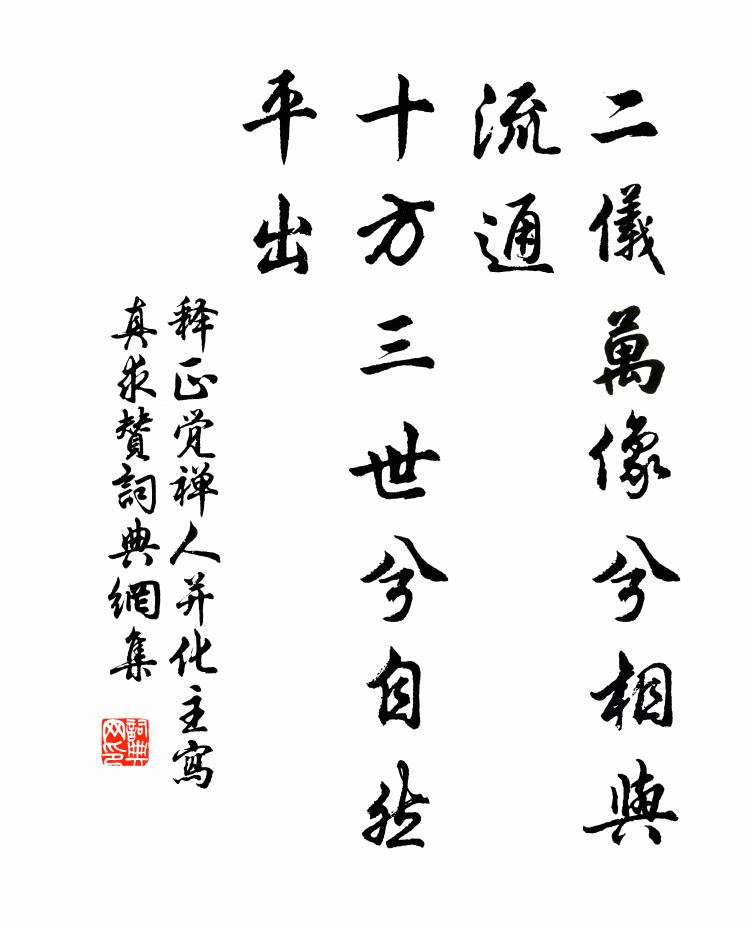 二儀萬像兮相與
流通
十方三世兮自然
平出
释正觉禅人并化主寫
真求贊詞典網集
詞典網印